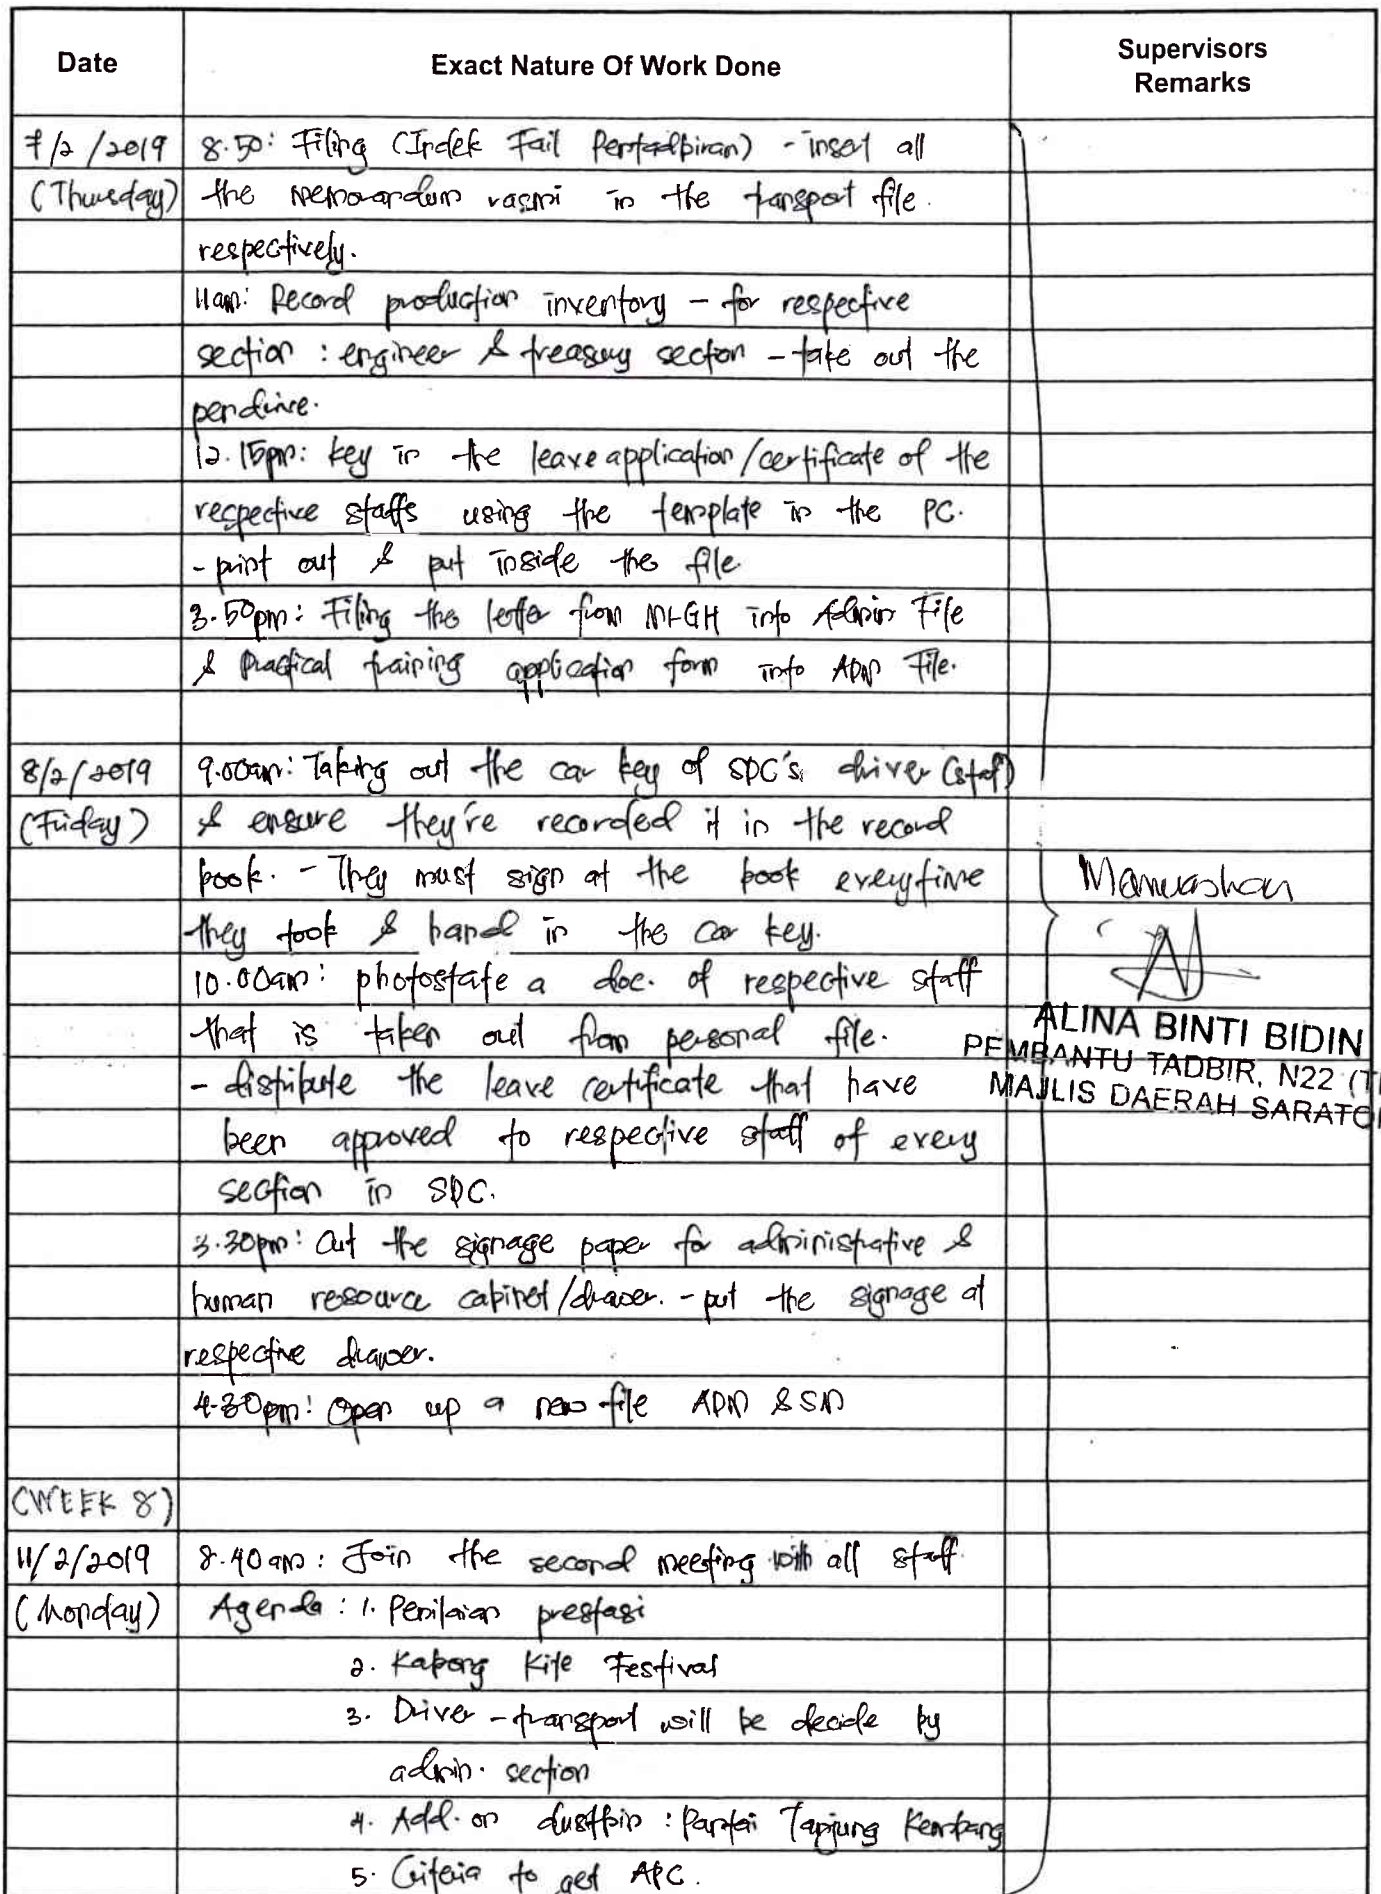 Date Exact Nature Of Work Done Supervisors Remarks
7/2/2019 8.50: Filing (Indek Fail Pentadbiran) - insert all
(Thursday) the memorandum rasmi in the transport file.
respectively.
11am: Record production inventory - for respective
section : engineer & treasury section - take out the
pendrive.
12.15pm: key in the leave application/certificate of the
respective staffs using the template in the PC.
- print out & put inside the file.
3.50pm: Filing the letter from MLGH into Admin File
& practical training application form into ADM File.
8/2/2019 9.00am: Taking out the car key of SDC's driver (staf)
(Friday) & ensure they're recorded it in the record
book. - They must sign at the book everytime
they took & hand in the car key.
10.00am: photostate a doc. of respective staff
that is taken out from personal file.
- distribute the leave certificate that have
been approved to respective staff of every
section in SDC.
3.30pm: Cut the signage paper for administrative &
human resource cabinet/drawer. - put the signage at
respective drawer.
4.30pm: Open up a new file ADM & SM
ALINA BINTI BIDIN
PEMBANTU TADBIR, N22 (T
MAJLIS DAERAH SARATO
(WEEK 8)
11/2/2019 8.40am: Join the second meeting with all staff.
(Monday) Agenda : 1. Penilaian prestasi
2. Kabong Kite Festival
3. Driver - transport will be decide by
admin. section
4. Add. on dustbin : Pantai Tanjung Kembang
5. Criteria to get APC.